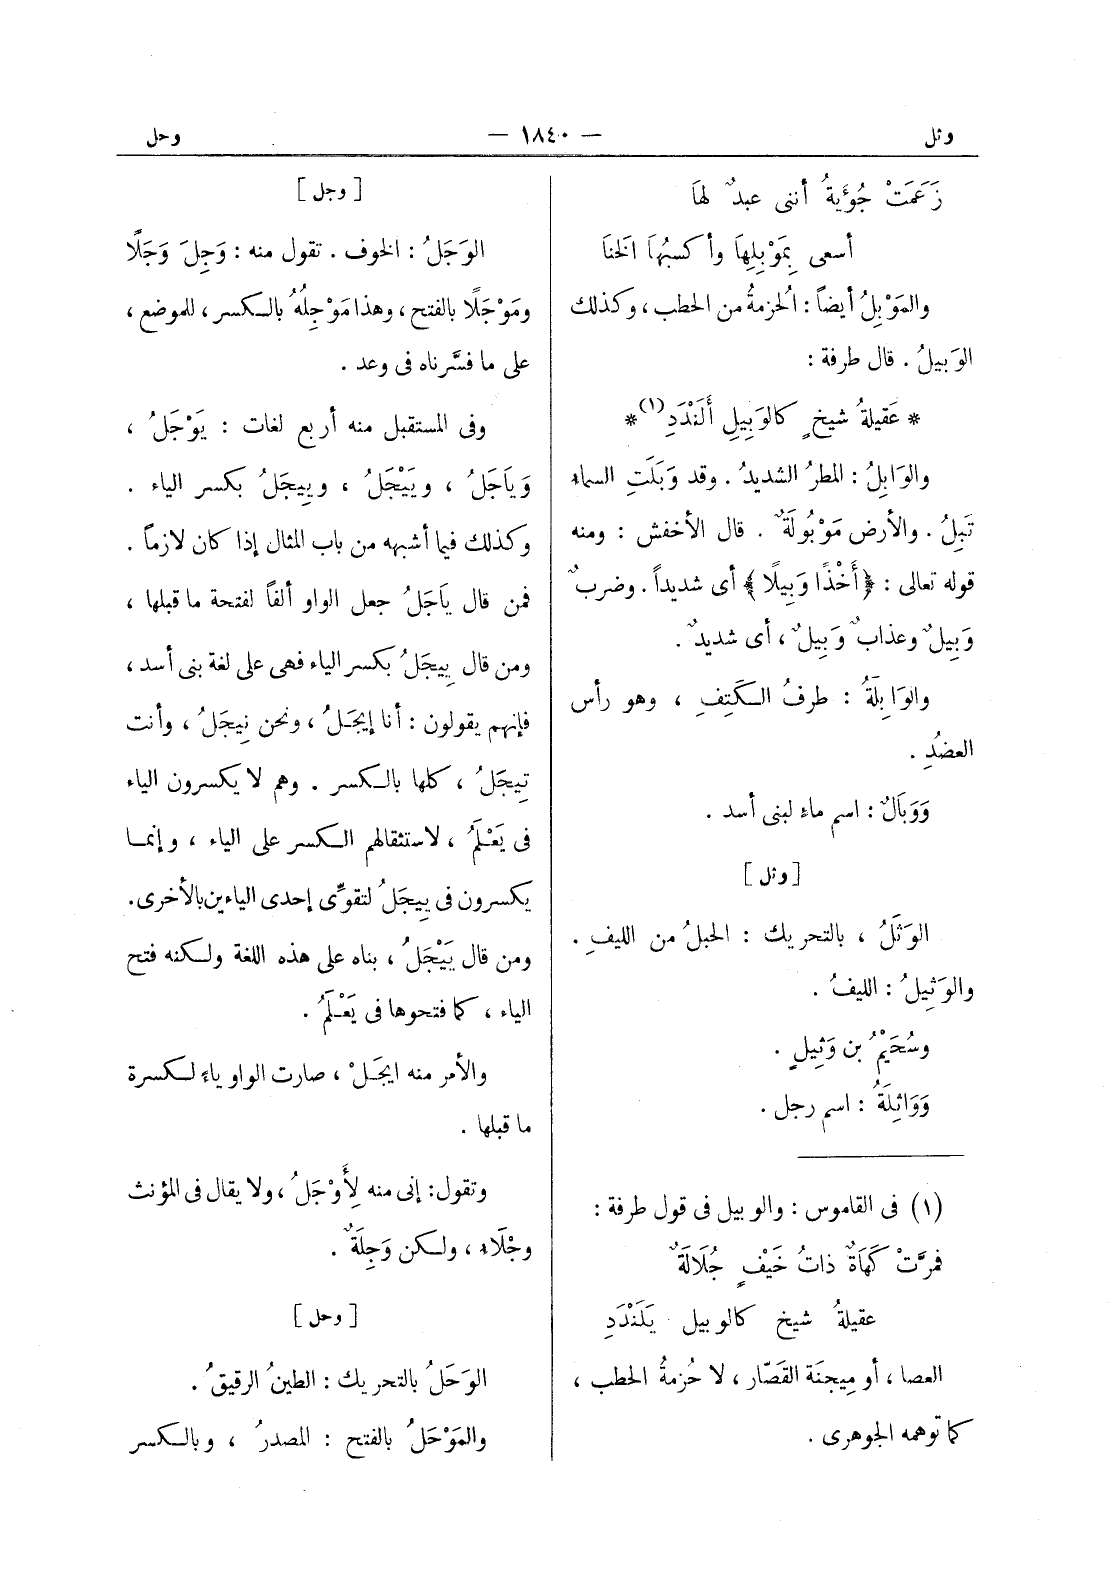 وثل
— ١٨٤٠ —
وحل
زَعَمَتْ جُؤَيةُ أننى عبدٌ لهَا
أسعى بِمَوْبِلِهَا وأكسبُهَا الْخنَا
والمَوْبِلُ أيضاً : الْحزمةُ من الحطب ، وكذلك
الوَبيلُ . قال طرفة :
* عَقيلةُ شيخٍ كالوَبِيلِ أَلَنْدَدِ (١) *
والوَابِلُ : المطرُ الشديدُ . وقد وَبَلَتِ السماء
تَبِلُ . والأرض مَوْبُولَةٌ . قال الأخفش : ومنه
قوله تعالى : ﴿أَخْذًا وَبِيلًا﴾ أى شديداً . وضربٌ
وَبِيلٌ وعذابٌ وَبِيلٌ ، أى شديدٌ .
والوَابِلَةُ : طرفُ الكَتِفِ ، وهو رأس
العضُدِ .
وَوَبَالٌ : اسم ماء لبنى أسد .
[ وثل ]
الوَثَلُ ، بالتحريك : الحبلُ من الليفِ .
والوَثِيلُ : الليفُ .
وسُحَيْمُ بن وَثِيلٍ .
وَوَاثِلَةُ : اسم رجل .
(١) فى القاموس : والوبيل فى قول طرفة :
فمرَّتْ كَهَاةٌ ذاتُ خَيْفٍ جُلَالَةٌ
عقيلةُ شيخ كالوبيل يَلَنْدَدِ
العصا ، أو مِيجنَة القَصّار ، لا حُزمةُ الحطب ،
كما توهمه الجوهرى .
[ وجل ]
الوَجَلُ : الخوف . تقول منه : وَجِلَ وَجَلًا
ومَوْجَلًا بالفتح ، وهذا مَوْجِلُهُ بالكسر ، للموضع ،
على ما فسَّرناه فى وعد .
وفى المستقبل منه أربع لغات : يَوْجَلُ ،
وَيَاجَلُ ، ويَيْجَلُ ، ويِيجَلُ بكسر الياء .
وكذلك فيما أشبهه من باب المثال إذا كان لازماً .
فمن قال يَاجَلُ جعل الواو ألفاً لفتحة ما قبلها ،
ومن قال يِيجَلُ بكسر الياء فهى على لغة بنى أسد ،
فإنهم يقولون : أنا إيجَلُ ، ونحن نِيجَلُ ، وأنت
تِيجَلُ ، كلها بالكسر . وهم لا يكسرون الياء
فى يَعْلَمُ ، لاستثقالهم الكسر على الياء ، وإنما
يكسرون فى يِيجَلُ لتقوِّى إحدى الياءين بالأخرى.
ومن قال يَيْجَلُ ، بناه على هذه اللغة ولكنه فتح
الياء ، كما فتحوها فى يَعْلَمُ .
والأمر منه ايجَلْ ، صارت الواو ياءً لكسرة
ما قبلها .
وتقول: إنى منه لِأَوْجَلُ ، ولا يقال فى المؤنث
وجْلَاء ، ولكن وَجِلَةٌ .
[ وحل ]
الوَحَلُ بالتحريك : الطينُ الرقيقُ .
والمَوْحَلُ بالفتح : المصدرُ ، وبالكسر